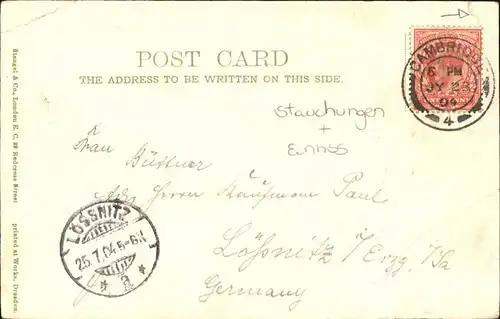 CAMBRIDGE
6 PM
JY 23
04
4
POST CARD
THE ADDRESS TO BE WRITTEN ON THIS SIDE.
Stauchungen
+
Einriss
Frau Büttner
Adr. Herrn Kaufmann Paul
Lößnitz i/Erzg. i/Sa
Germany
LÖSSNITZ
25.7.04.5-6N
* a *
Stengel & Co., London E. C. 39 Redcross Street
printed at Works, Dresden.